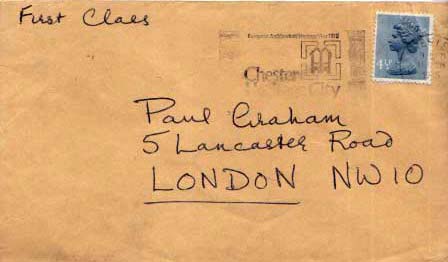 First Class
European Architectural Heritage Year 1975
Chester
City
4½P
Paul Graham
5 Lancaster Road
LONDON NW10